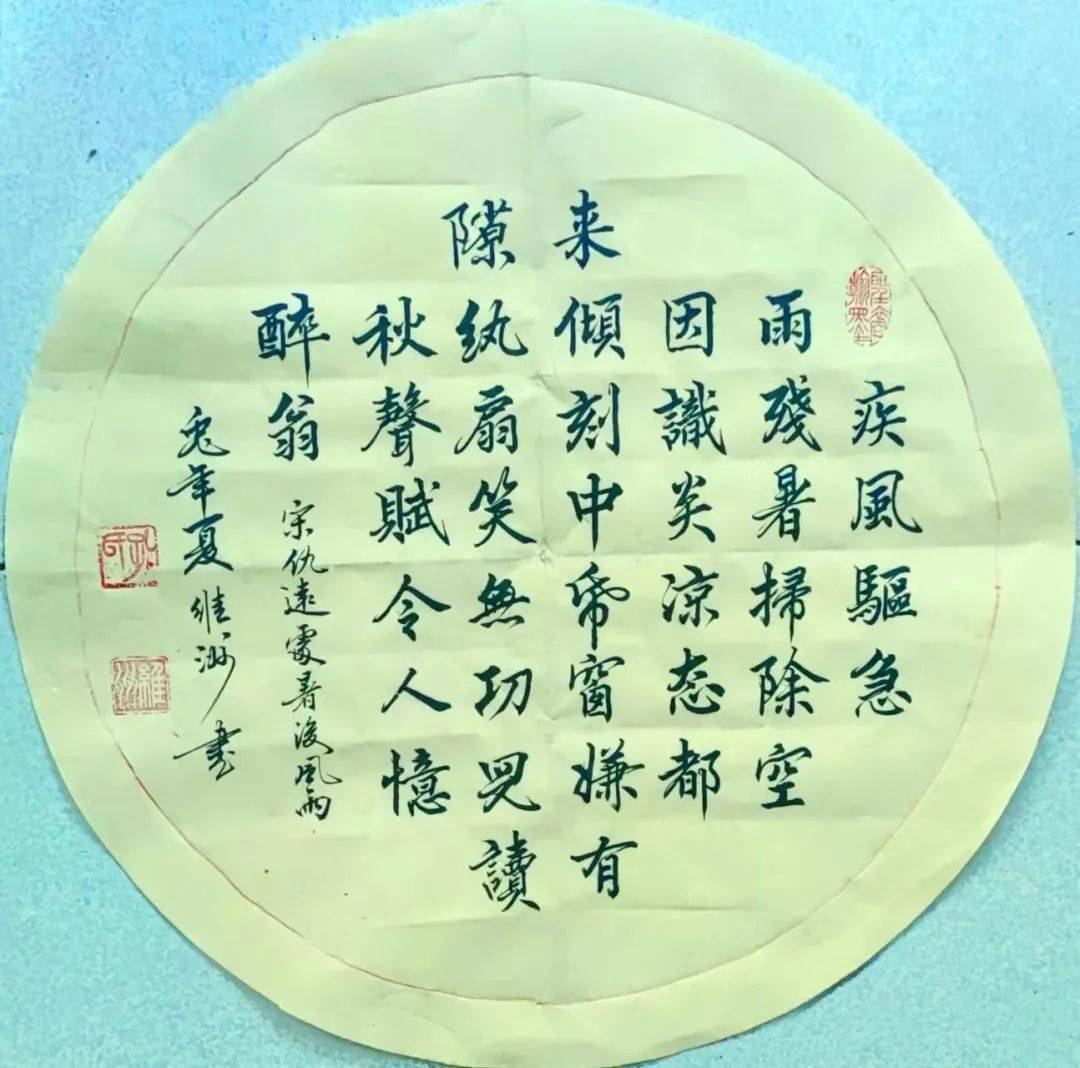 疾風驅急
雨殘暑掃除空
因識炎涼态都
来傾刻中帋窗嫌有
隙紈扇笑無功兒讀
秋聲賦令人憶
醉翁
宋仇遠處暑後風雨
兎年夏維洲書